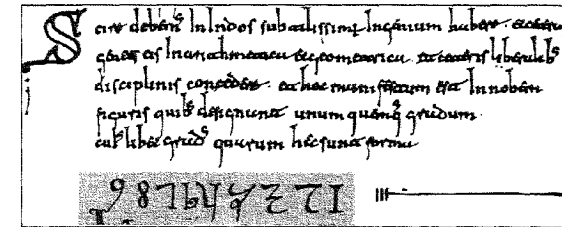 Scire debem⁹ In Indos subtilissimũ Ingenium habere. et ceteras
gentes eis In arithmetica et geometrica et ceteris liberalib⁹
disciplinis concedere. et hoc manifestum est In nobem
figuris quib⁹ designant unum quenq⁹ gradum
cui⁹libet grad⁹ quarum hec sunt forma
9 8 7 6 5 4 3 2 1